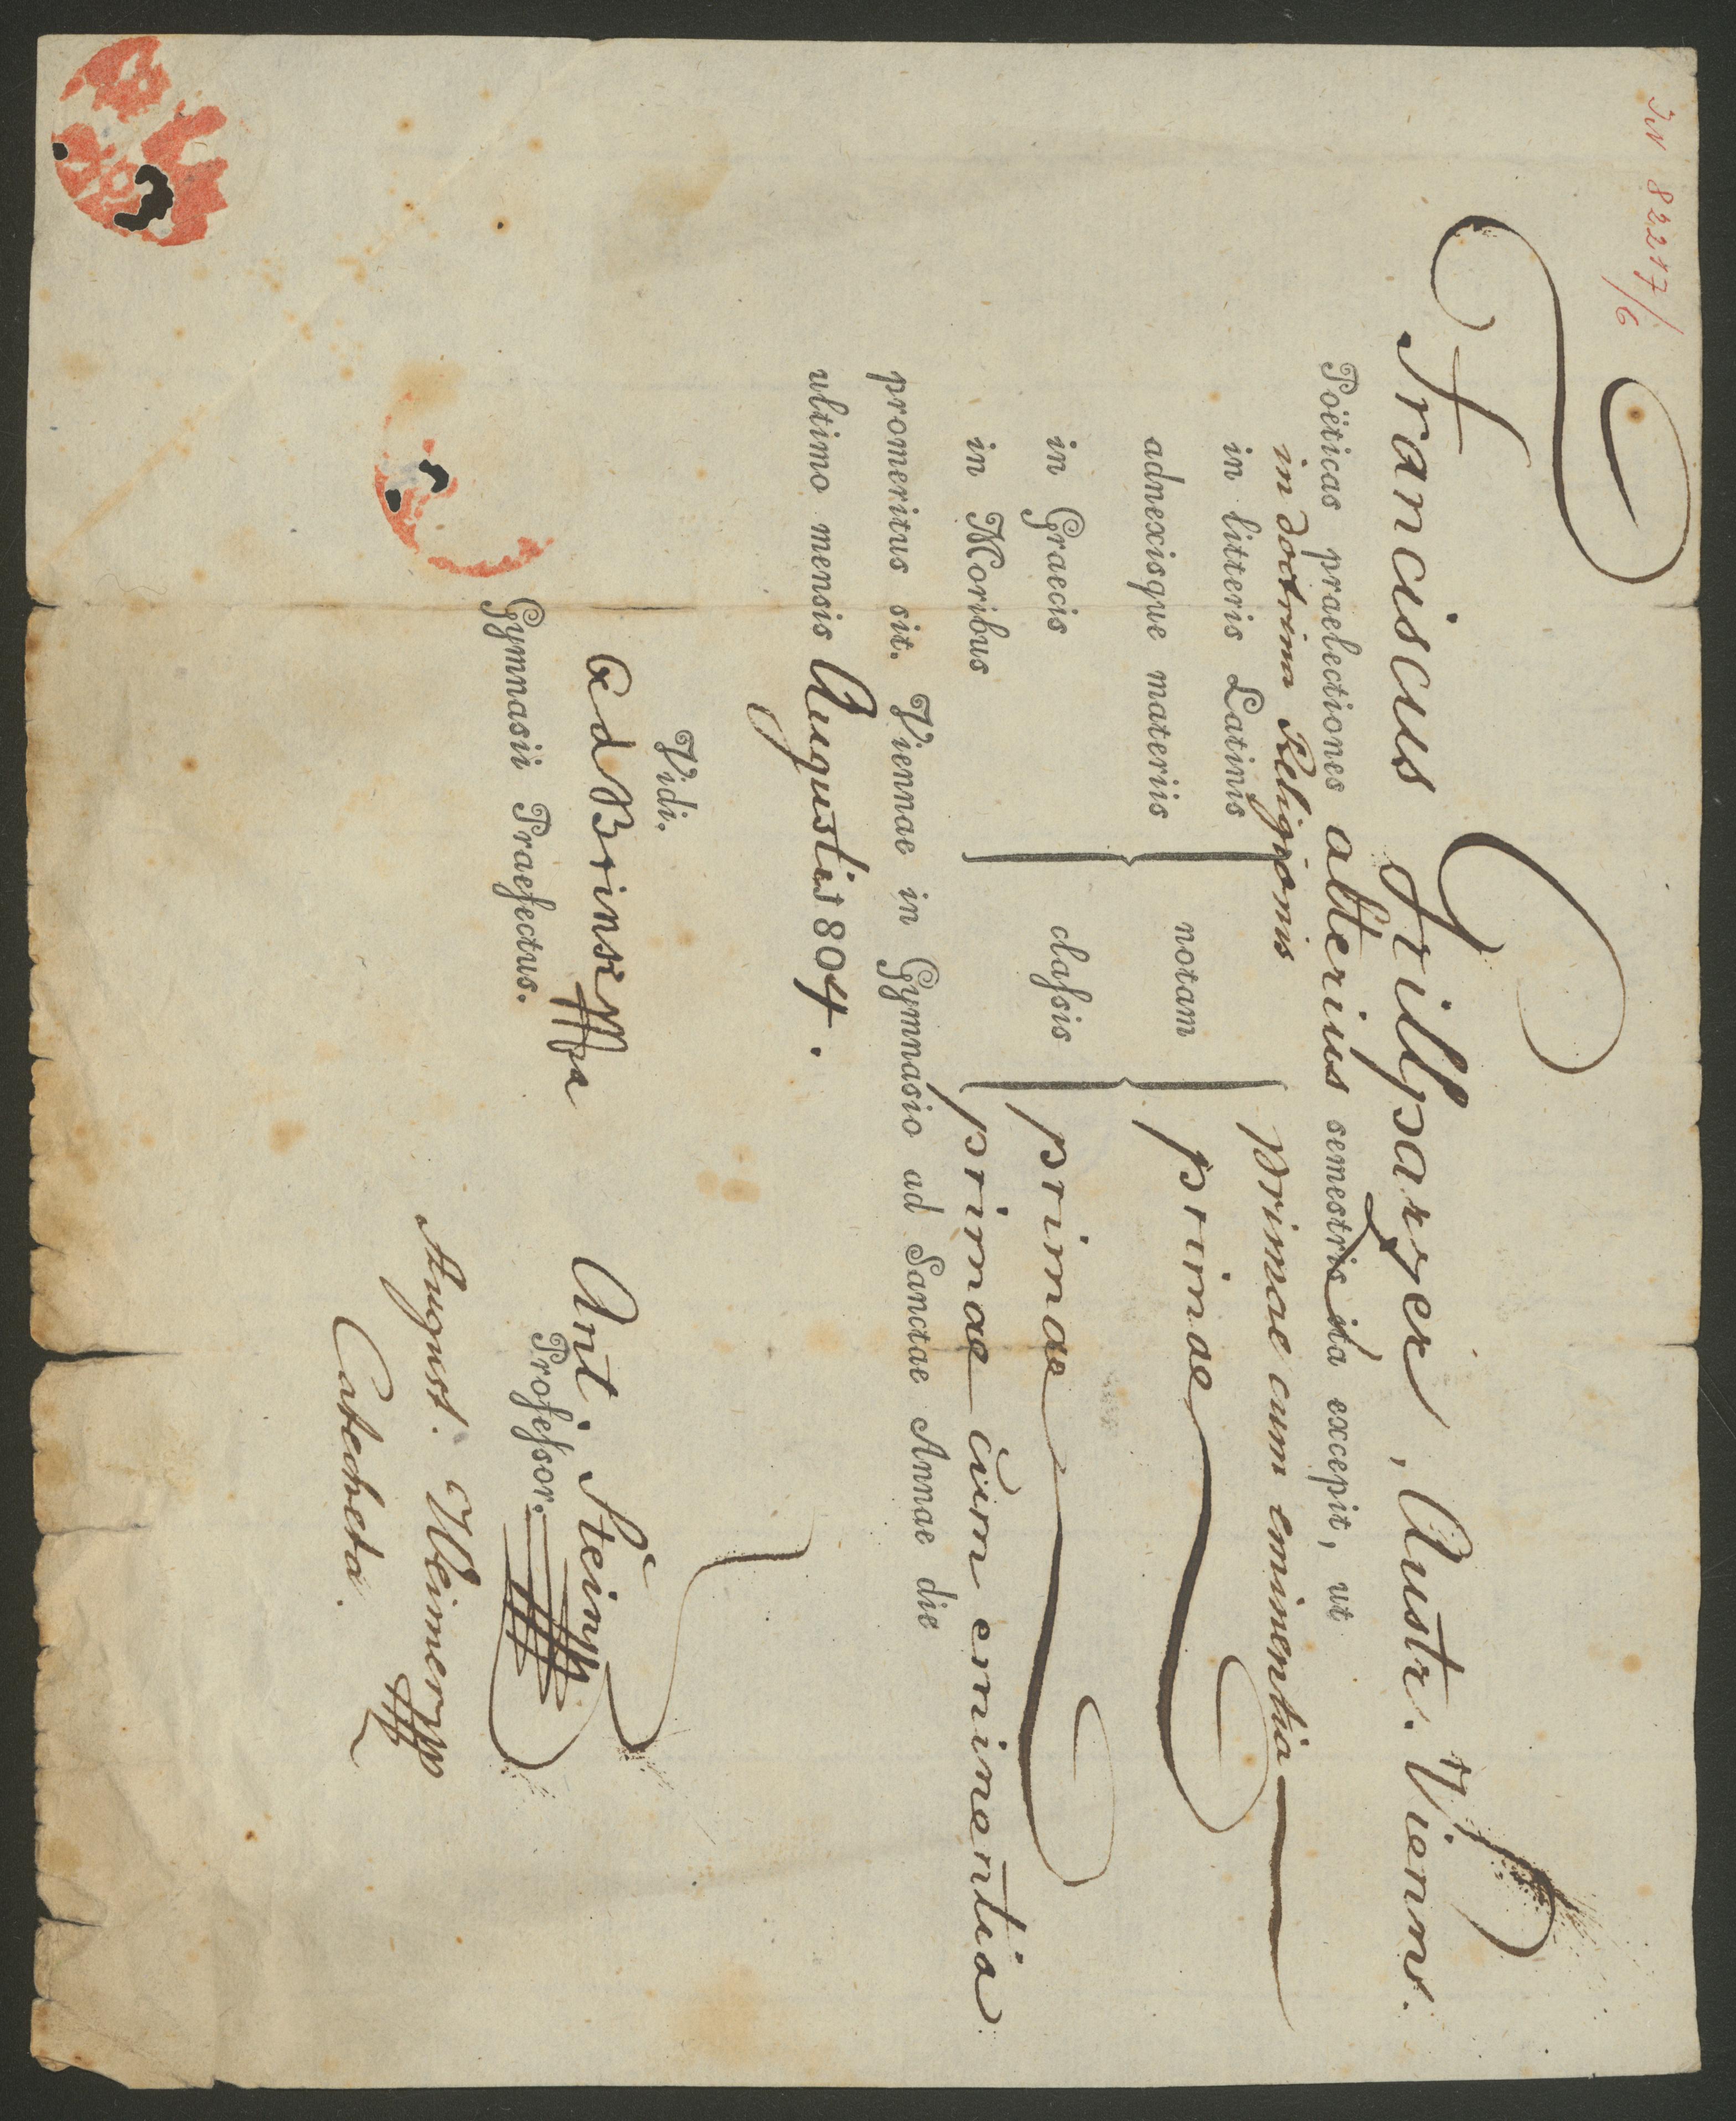 IN 82217/6
Franciscus Grillparzer, Austr. Vienns.
Poëticas praelectiones alterius semestris ita excepit, ut
in doctrina Religionis primae cum eminentia
in litteris Latinis
adnexisque materiis notam primae
in Graecis classis primae
in Moribus primae cum eminentia
promeritus sit. Viennae in Gymnasio ad Sanctae Annae die
ultimo mensis Augusti 1804.
Vidi.
Gymnasii Praefectus.
Ant. Stein
Professor.
August. Weimer
Catecheta.